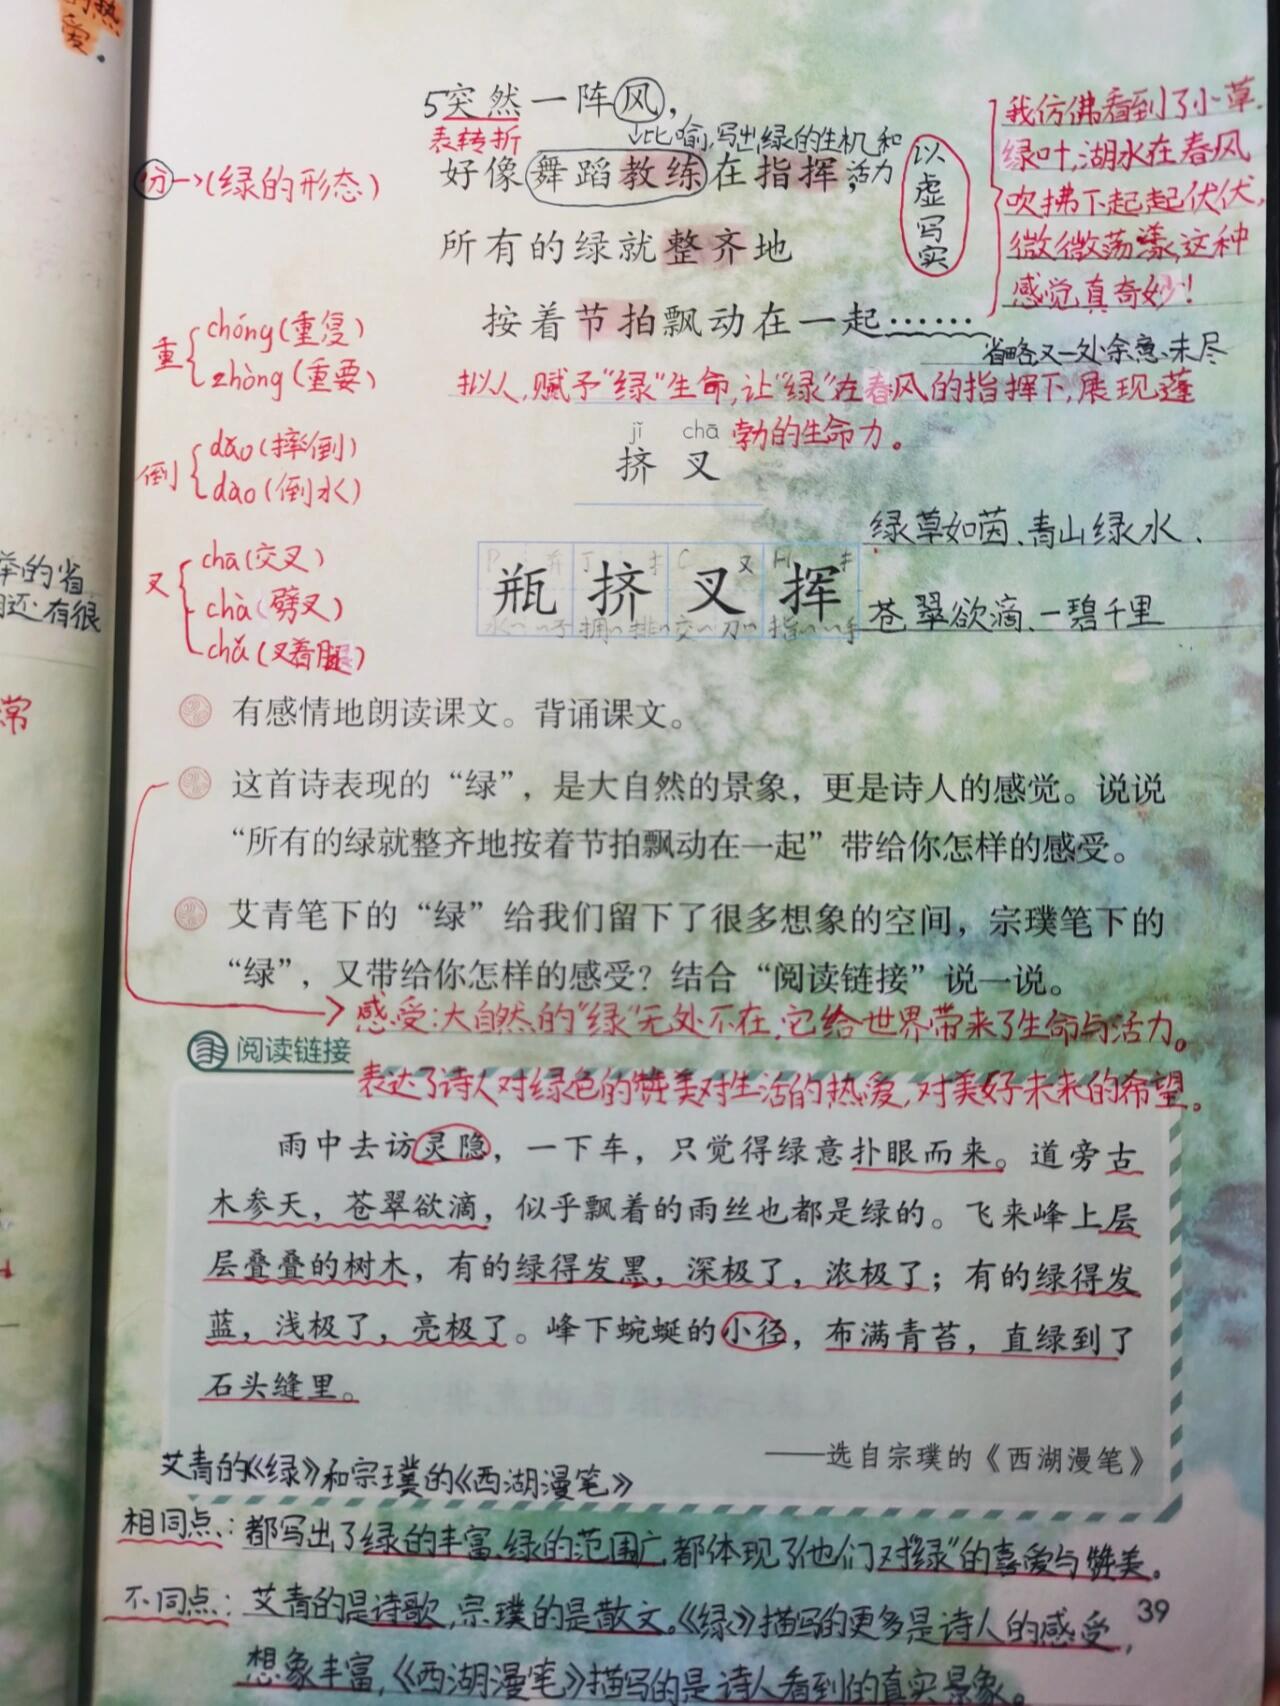 的热
爱.
5突然一阵风，
表转折
比喻,写出绿的生机和
活力
好像舞蹈教练在指挥，
份→(绿的形态)
以虚写实
我仿佛看到了小草.
绿叶,湖水在春风
吹拂下起起伏伏,
微微荡漾,这种
感觉真奇妙!
所有的绿就整齐地
按着节拍飘动在一起……
省略又一处余意未尽
拟人,赋予"绿"生命,让"绿"在春风的指挥下,展现蓬
勃的生命力。
重 chóng(重复)
zhòng(重要)
倒 dǎo(摔倒)
dào(倒水)
叉 chā(交叉)
chà(劈叉)
chǎ(叉着腿)
jǐ chā
挤 叉
绿草如茵、青山绿水、
瓶 挤 叉 挥
苍翠欲滴、一碧千里
举的省
还有很
常
有感情地朗读课文。背诵课文。
这首诗表现的“绿”，是大自然的景象，更是诗人的感觉。说说
“所有的绿就整齐地按着节拍飘动在一起”带给你怎样的感受。
艾青笔下的“绿”给我们留下了很多想象的空间，宗璞笔下的
“绿”，又带给你怎样的感受？结合“阅读链接”说一说。
感受:大自然的"绿"无处不在,它给世界带来了生命与活力。
阅读链接
表达了诗人对绿色的赞美对生活的热爱,对美好未来的希望。
雨中去访灵隐，一下车，只觉得绿意扑眼而来。道旁古
木参天，苍翠欲滴，似乎飘着的雨丝也都是绿的。飞来峰上层
层叠叠的树木，有的绿得发黑，深极了，浓极了；有的绿得发
蓝，浅极了，亮极了。峰下蜿蜒的小径，布满青苔，直绿到了
石头缝里。
——选自宗璞的《西湖漫笔》
艾青的《绿》和宗璞的《西湖漫笔》
相同点:都写出了绿的丰富、绿的范围广,都体现了他们对"绿"的喜爱与赞美。
不同点:艾青的是诗歌,宗璞的是散文。《绿》描写的更多是诗人的感受,
39
想象丰富,《西湖漫笔》描写的是诗人看到的真实景象。